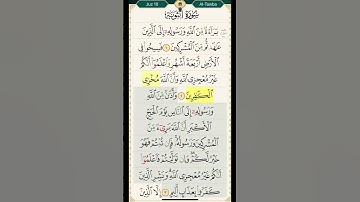 Juz 10 Al-Tawba
سُورَةُ التَّوْبَةِ
بَرَآءَةٌ مِّنَ ٱللَّهِ وَرَسُولِهِۦٓ إِلَى ٱلَّذِينَ
عَٰهَدتُّم مِّنَ ٱلْمُشْرِكِينَ ١ فَسِيحُوا۟ فِى
ٱلْأَرْضِ أَرْبَعَةَ أَشْهُرٍ وَٱعْلَمُوٓا۟ أَنَّكُمْ
غَيْرُ مُعْجِزِى ٱللَّهِ وَأَنَّ ٱللَّهَ مُخْزِى
ٱلْكَٰفِرِينَ ٢ وَأَذَٰنٌ مِّنَ ٱللَّهِ
وَرَسُولِهِۦٓ إِلَى ٱلنَّاسِ يَوْمَ ٱلْحَجِّ
ٱلْأَكْبَرِ أَنَّ ٱللَّهَ بَرِىٓءٌ مِّنَ
ٱلْمُشْرِكِينَ وَرَسُولُهُۥ فَإِن تُبْتُمْ فَهُوَ
خَيْرٌ لَّكُمْ وَإِن تَوَلَّيْتُمْ فَٱعْلَمُوٓا۟
أَنَّكُمْ غَيْرُ مُعْجِزِى ٱللَّهِ وَبَشِّرِ ٱلَّذِينَ
كَفَرُوا۟ بِعَذَابٍ أَلِيمٍ ٣ إِلَّا ٱلَّذِينَ